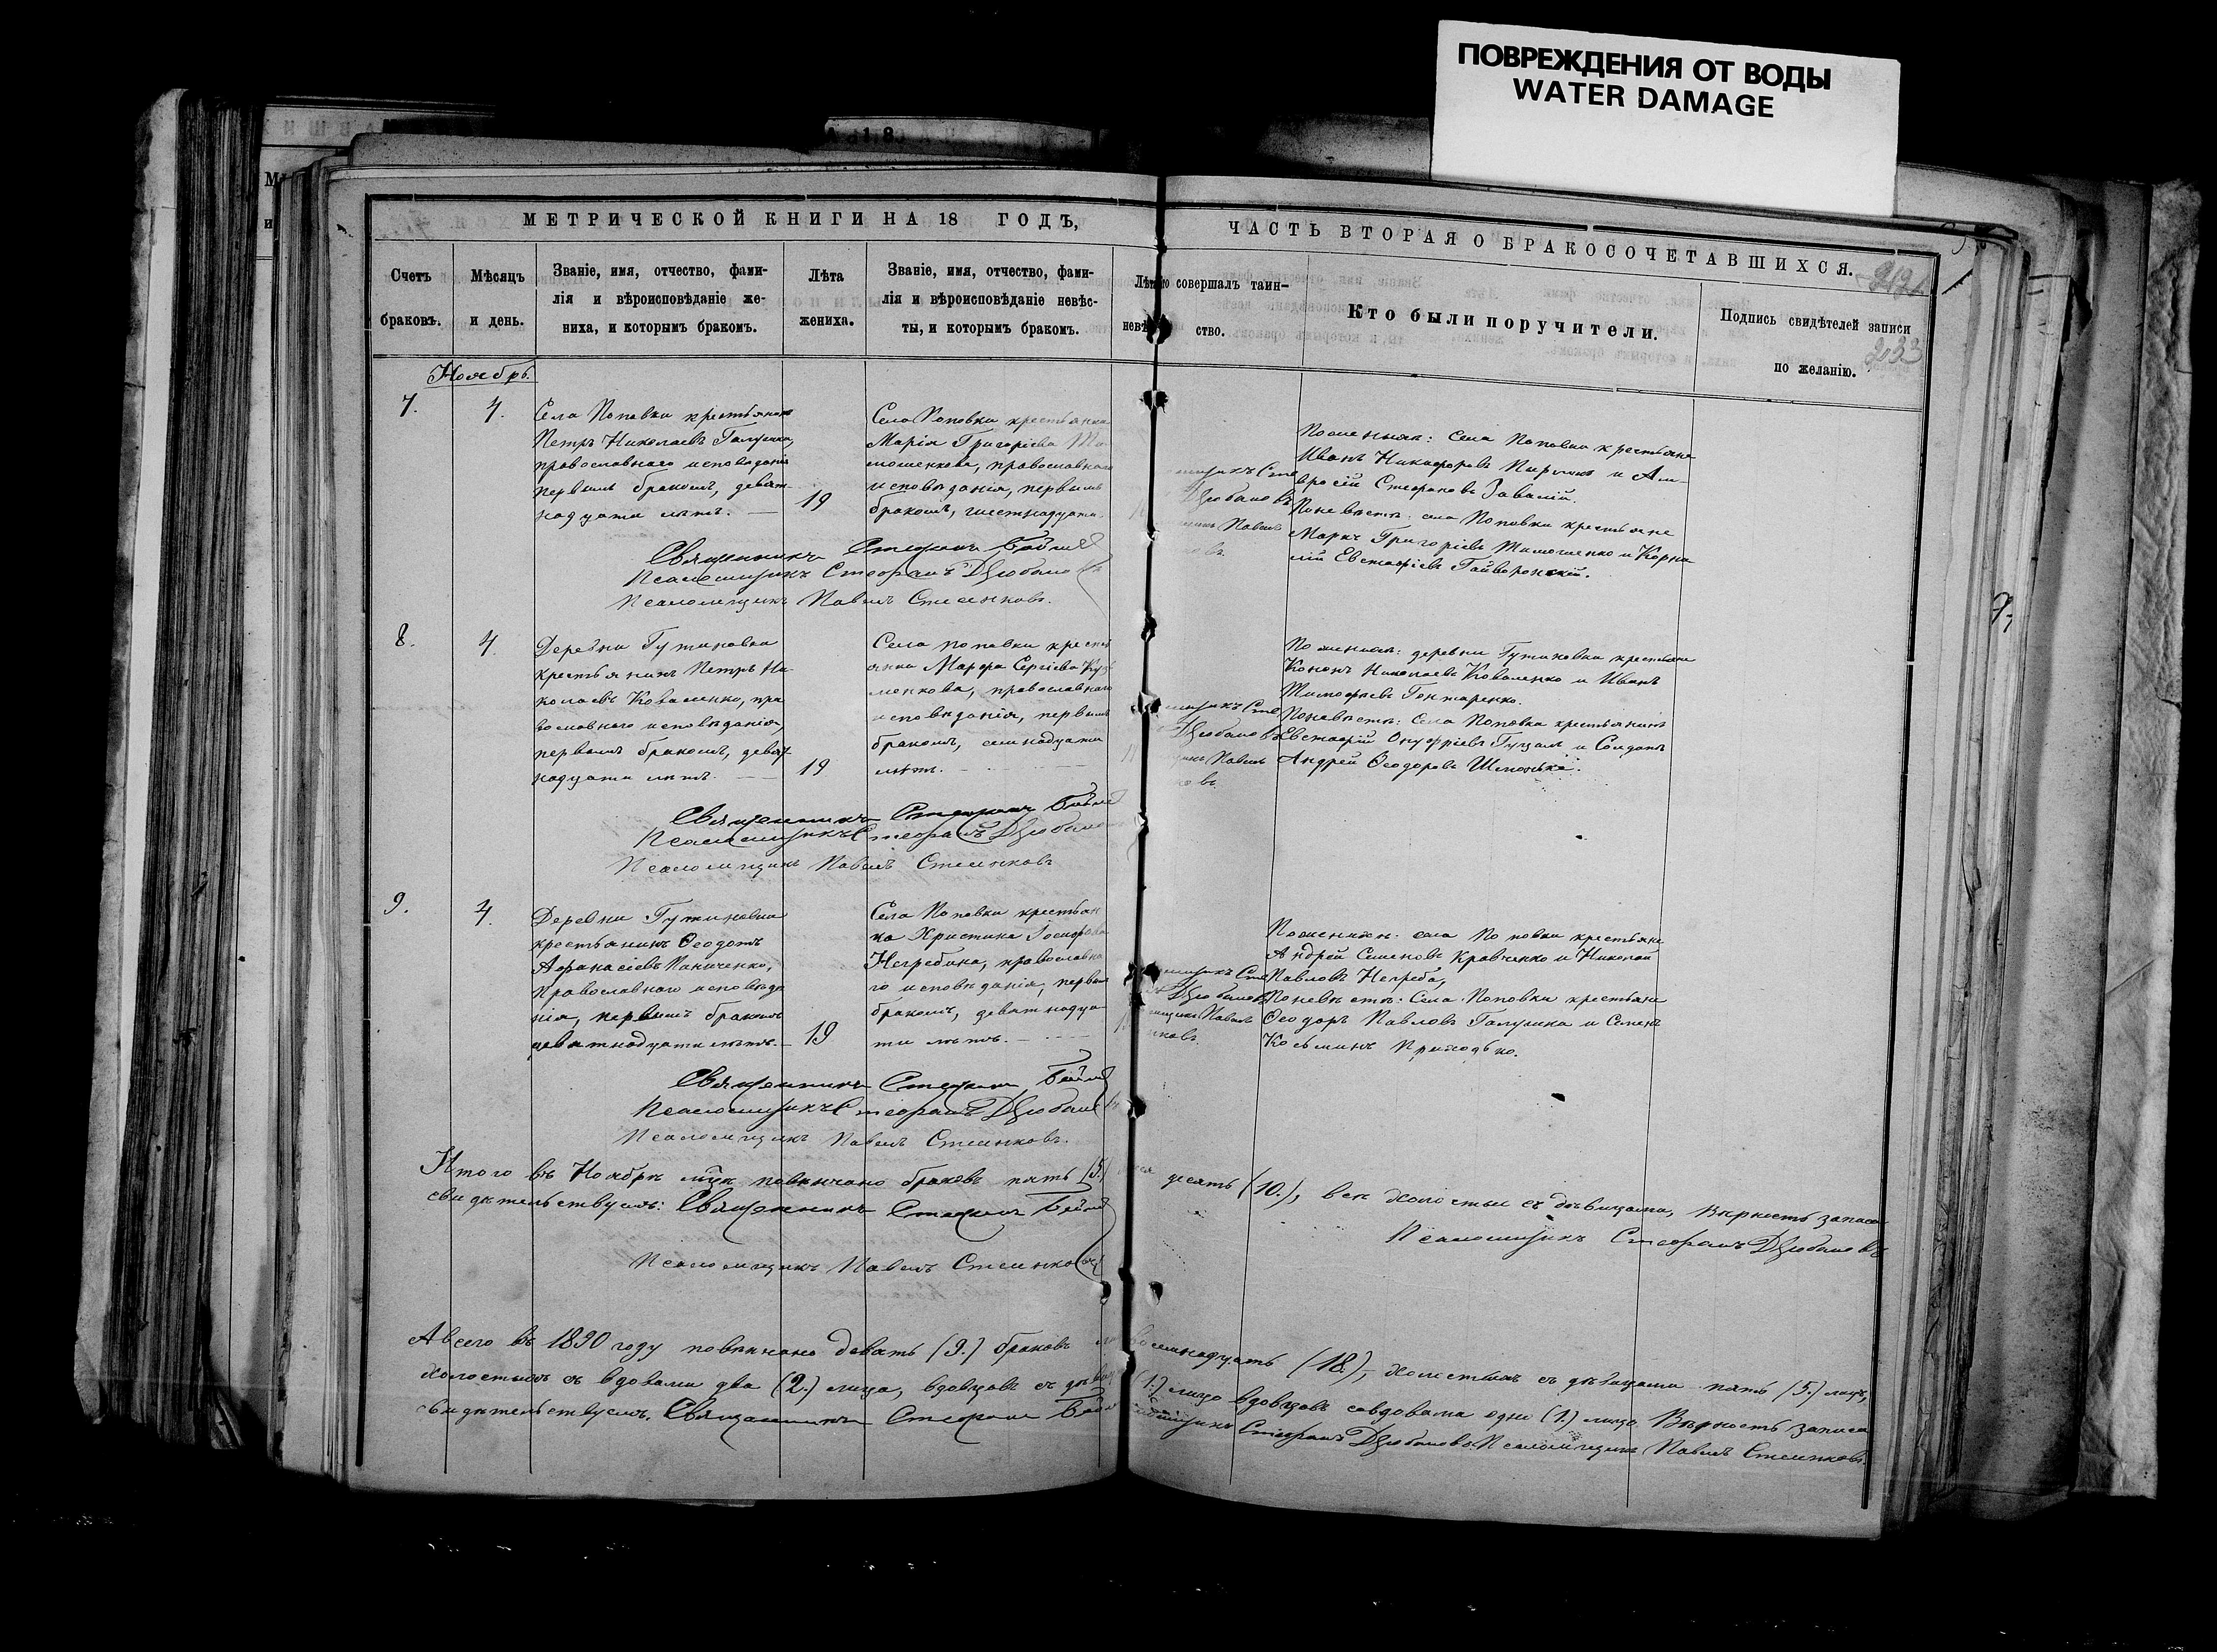 ПОВРЕЖДЕНИЯ ОТ ВОДЫ
WATER DAMAGE
МЕТРИЧЕСКОЙ КНИГИ НА 18 ГОДЪ,
ЧАСТЬ ВТОРАЯ О БРАКОСОЧЕТАВШИХСЯ.
Счетъ
браковъ.
Мѣсяцъ
и день.
Званіе, имя, отчество, фами-
лія и вѣроисповѣданіе же-
ниха, и которымъ бракомъ.
Лѣта
жениха.
Званіе, имя, отчество, фами-
лія и вѣроисповѣданіе невѣс-
ты, и которымъ бракомъ.
совершалъ таин-
ство.
Кто были поручители.
Подпись свидѣтелей записи
по желанію.
233
Ноябрь.
7.
4.
Села Поповки крестьянинъ
Петръ Николаевъ Галушка,
православнаго исповѣданія
первымъ бракомъ, девят-
надцати лѣтъ.
19
Села Поповки крестьянка
Марія Григоріева Ти-
мошенкова, православнаго
исповѣданія, первымъ
бракомъ, шестнадцати
По женихѣ: села Поповки крестьяне
Иванъ Никифоровъ и Ам-
вросій Стефановъ Завалій.
По невѣстѣ: села Поповки крестьяне
Маркъ Григоріевъ Тимошенко и Корни-
лій Евстафіевъ Гайворонскій.
Священникъ Стефанъ
Псаломщикъ Стефанъ Дзюбановъ
Псаломщикъ Павелъ Стеенковъ.
8.
4.
Деревни Гутировки
крестьянинъ Петръ Ни-
колаевъ Коваленко, пра-
вославнаго исповѣданія,
первымъ бракомъ, девят-
надцати лѣтъ.
19
Села Поповки крестья
янка Марфа Сергіева
менкова, православнаго
исповѣданія, первымъ
бракомъ, семнадцати
лѣтъ.
По женихѣ: деревни Гутировки крестьяне
Кононъ Николаевъ Коваленко и Иванъ
Тимофеевъ Гонтаренко.
По невѣстѣ: Села Поповки крестьянинъ
Евстафій Онуфріевъ Гуцалъ и Солдатъ
Андрей Ѳеодоровъ
Священникъ Стефанъ
Псаломщикъ Стефанъ Дзюбановъ
Псаломщикъ Павелъ Стеенковъ
9.
4.
Деревни Гутировки
крестьянинъ Ѳеодотъ
Афанасіевъ Паниченко,
Православнаго исповѣда
нія, первымъ бракомъ
девятнадцати лѣтъ.
19
Села Поповки крестьян
ка Христина Іосифова
Негребина, православна
го исповѣданія, первым
бракомъ, девятнадца
ти лѣтъ.
По женихѣ: села Поповки крестьяне
Андрей Семеновъ Кравченко и Николай
Павловъ Негреба,
По невѣстѣ: Села Поповки крестьяне
Ѳеодоръ Павловъ Галушка и Семенъ
Косьминъ Приходько.
Священникъ Стефанъ
Псаломщикъ Стефанъ Дзюбановъ
Псаломщикъ Павелъ Стеенковъ.
Итого въ Ноябрѣ мцѣ повѣнчано браковъ пять (5.) десять (10.), всѣ холостые съ дѣвицами, Вѣрность записи
свидѣтельствуемъ: Священникъ Стефанъ
Псаломщикъ Стефанъ Дзюбановъ
Псаломщикъ Павелъ Стеенковъ
А всего въ 1890 году повѣнчано девять (9.) браковъ восемнадцать (18.), холостыхъ съ дѣвицами пять (5.) лицъ,
холостыхъ съ вдовами два (2.) лица, вдовцовъ съ (1.) лицо вдовцовъ со вдовами одно (1.) лицо, Вѣрность записи
свидѣтельствуемъ. Священникъ Стефанъ Стефанъ Дзюбановъ Псаломщикъ Павелъ Стеенковъ.